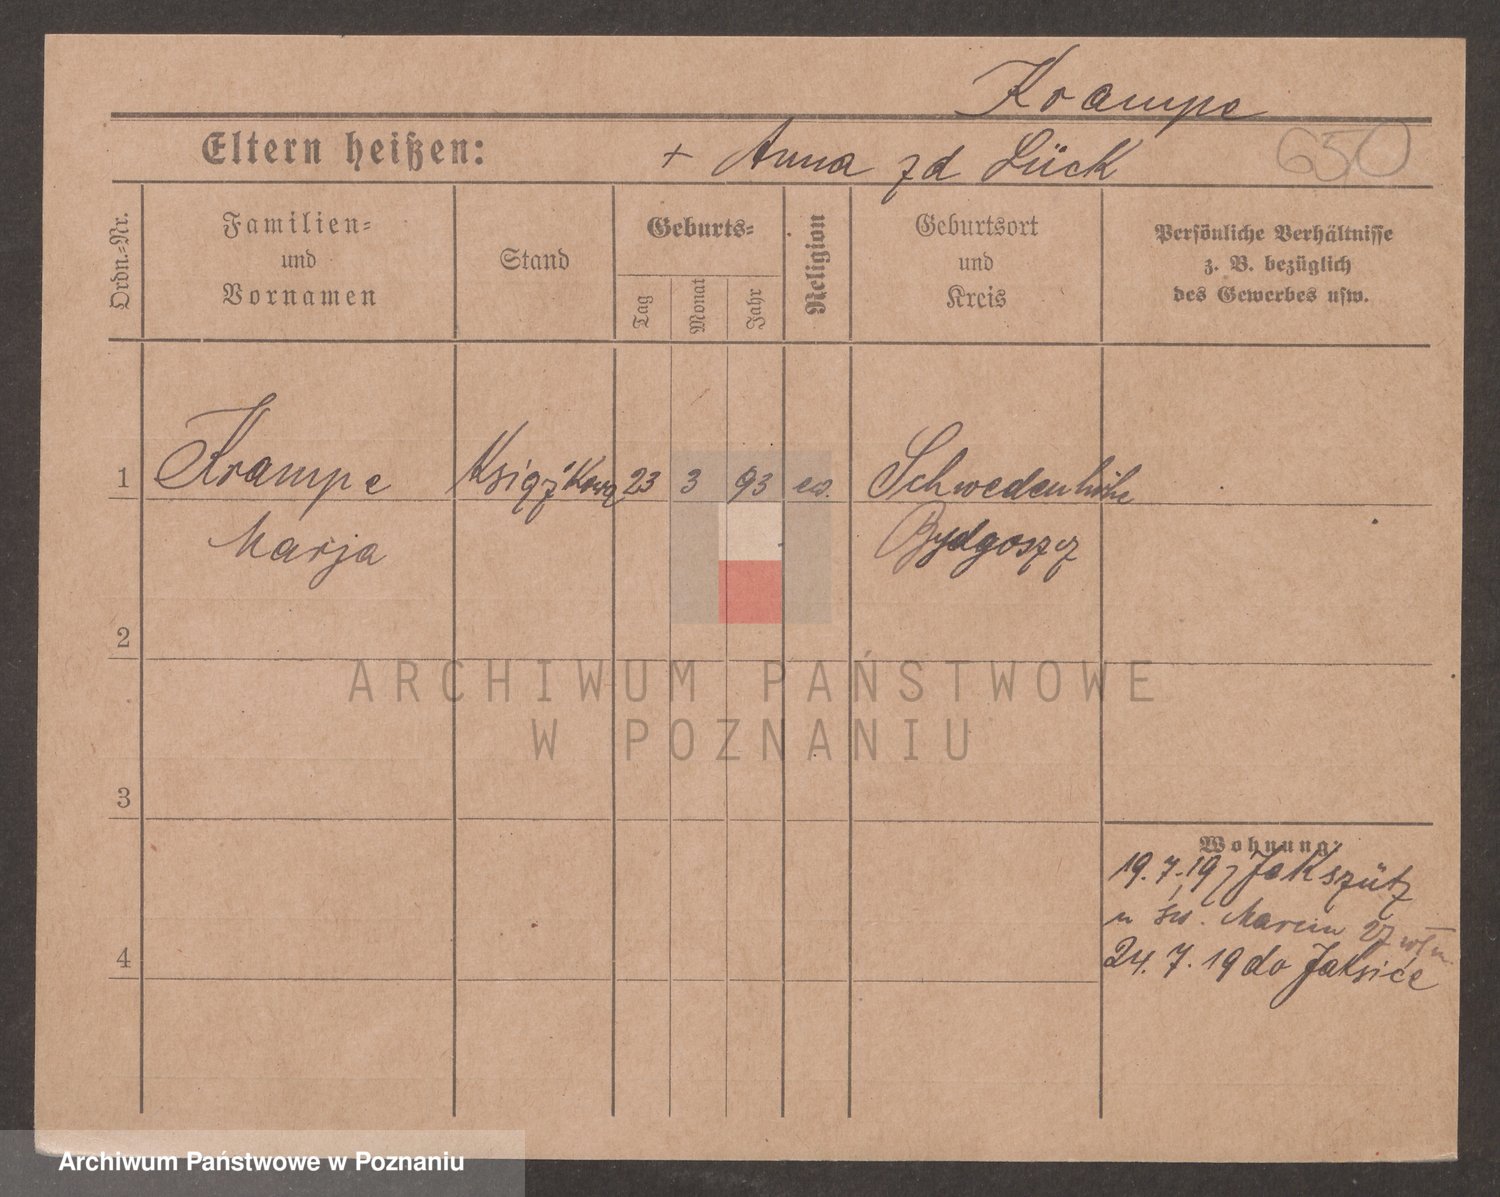 Krampe
Eltern heißen:
+ Anna zd Lück
650
Ordn.-Nr.
Familien-
und
Vornamen
Stand
Geburts-
Tag
Monat
Jahr
Religion
Geburtsort
und
Kreis
Persönliche Verhältnisse
z. B. bezüglich
des Gewerbes usw.
1 Krampe Książkowa 23 3 93 ew. Schwedenhöhe
Marja Bydgoszcz
2
3
4
Wohnung:
19.7.19 z Jakszütz
n św. Marcin 27
24.7.19 do Jaksice
ARCHIWUM PAŃSTWOWE
W POZNANIU
Archiwum Państwowe w Poznaniu